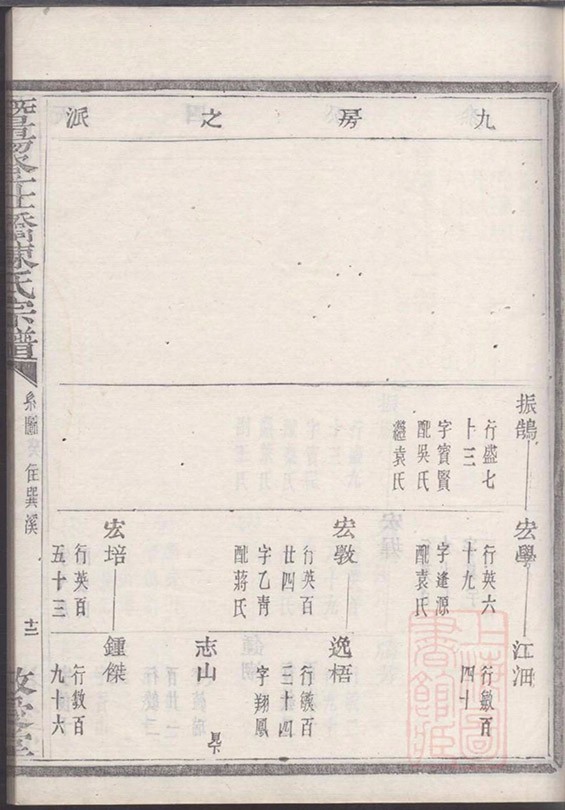 九房之派
振鵠
行盛七
十三
字寶賢
配吳氏
繼袁氏
宏學
行英六
十九
字逢源
配袁氏
江沺
行敏百
四十
宏敩
行英百
廿四
字乙青
配蔣氏
逸梧
行敏百
三廿四
字翔鳳
志山
宏培
行英百
五十三
鍾傑
行敏百
九十六
陳氏宗譜
系圖
住巽溪
十三